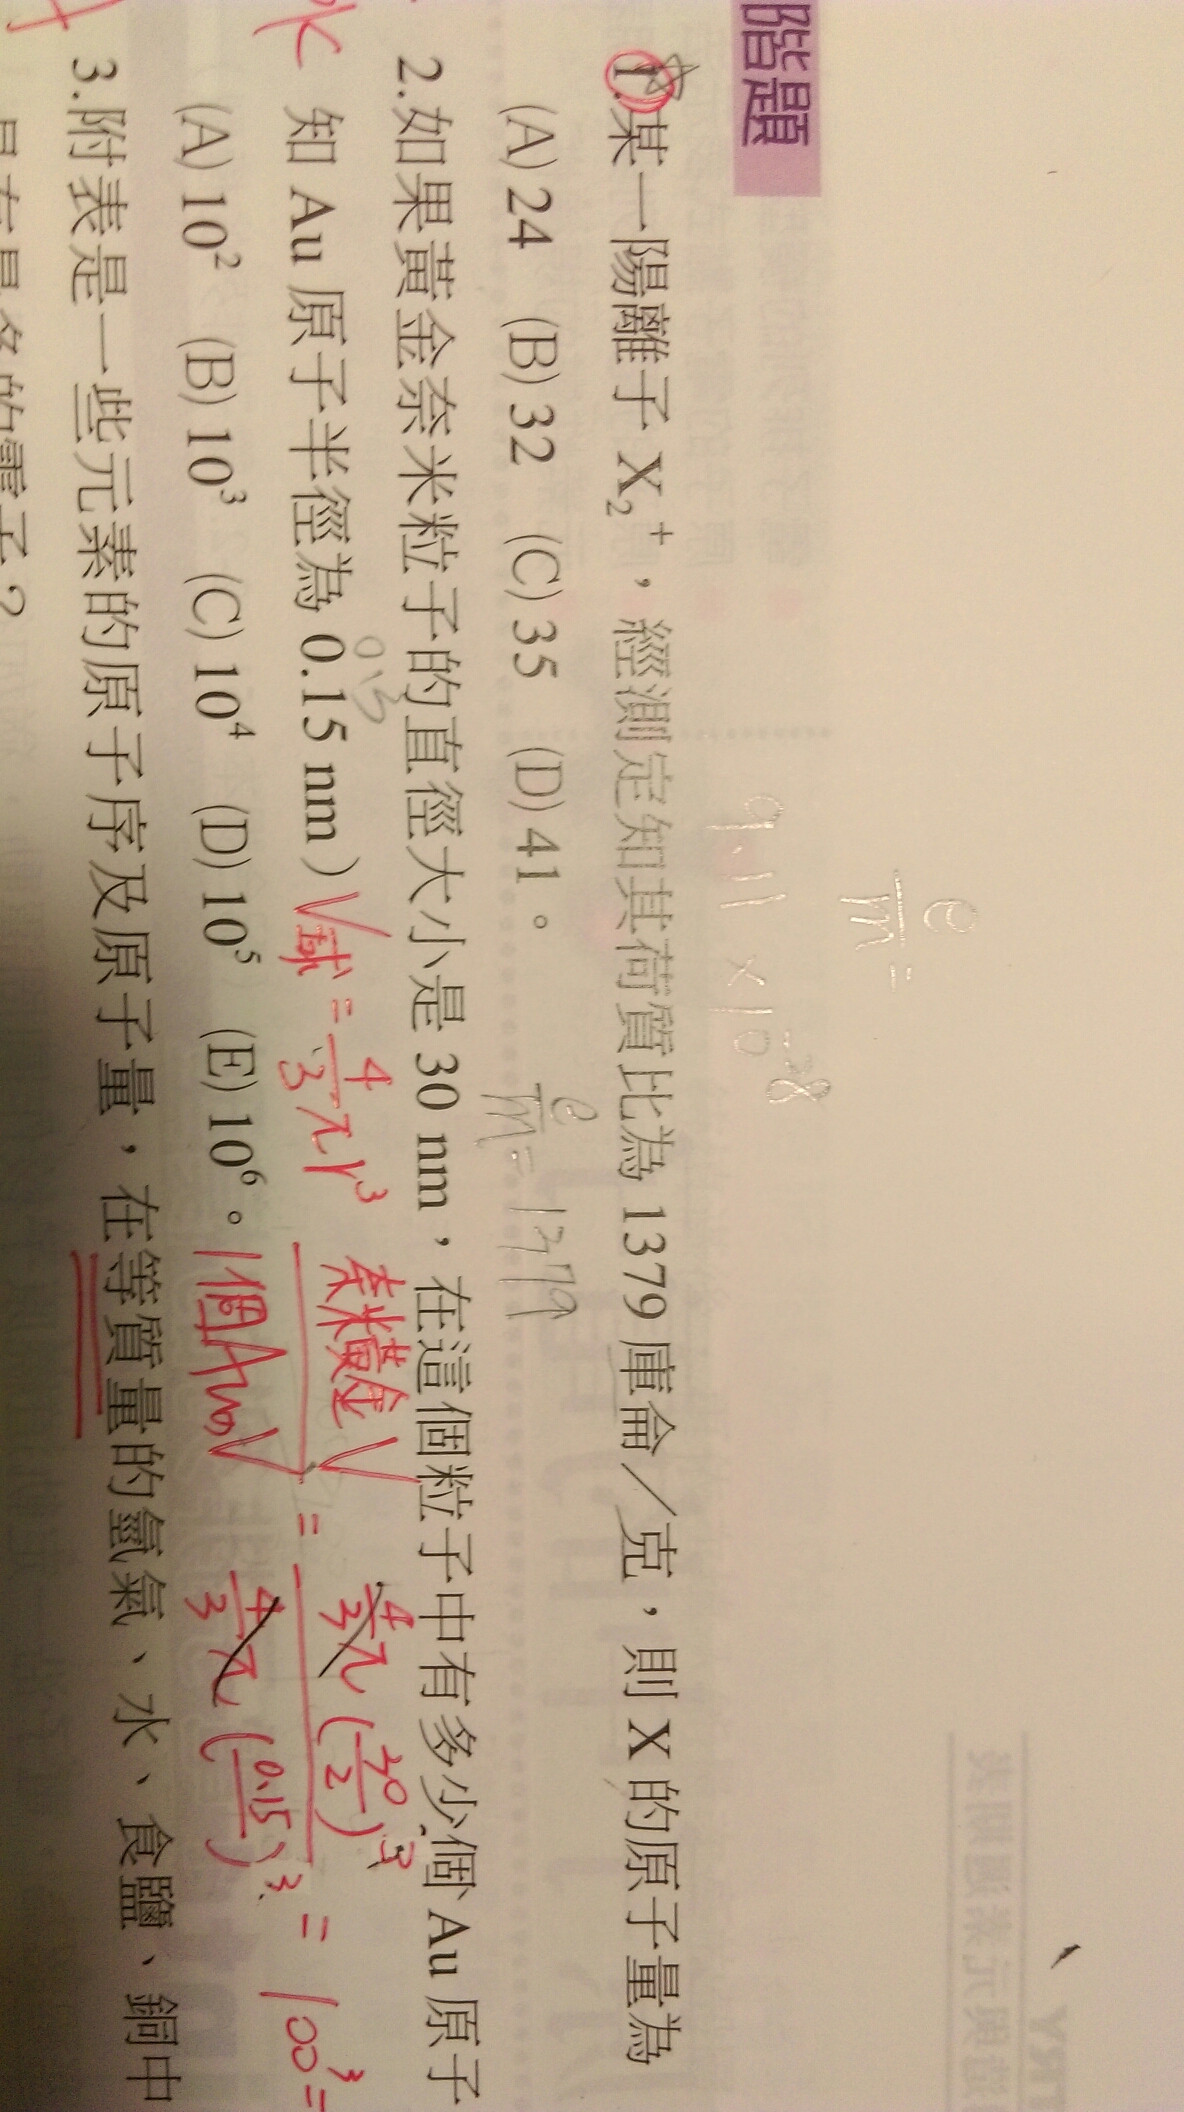 階題
1.某一陽離子 X₂⁺，經測定知其荷質比為 1379 庫侖／克，則 X 的原子量為
(A) 24 (B) 32 (C) 35 (D) 41。
e/m =
9.11 × 10⁻²⁸
e/m = 1379
2.如果黃金奈米粒子的直徑大小是 30 nm，在這個粒子中有多少個 Au 原子
知 Au 原子半徑為 0.15 nm）
0.3
V球 = 4/3 πr³
奈米黃金V / 1個Au V = 4/3 π (30/2)³ / 4/3 π (0.15)³ = 100³ =
(A) 10² (B) 10³ (C) 10⁴ (D) 10⁵ (E) 10⁶。
3.附表是一些元素的原子序及原子量，在等質量的氫氣、水、食鹽、銅中